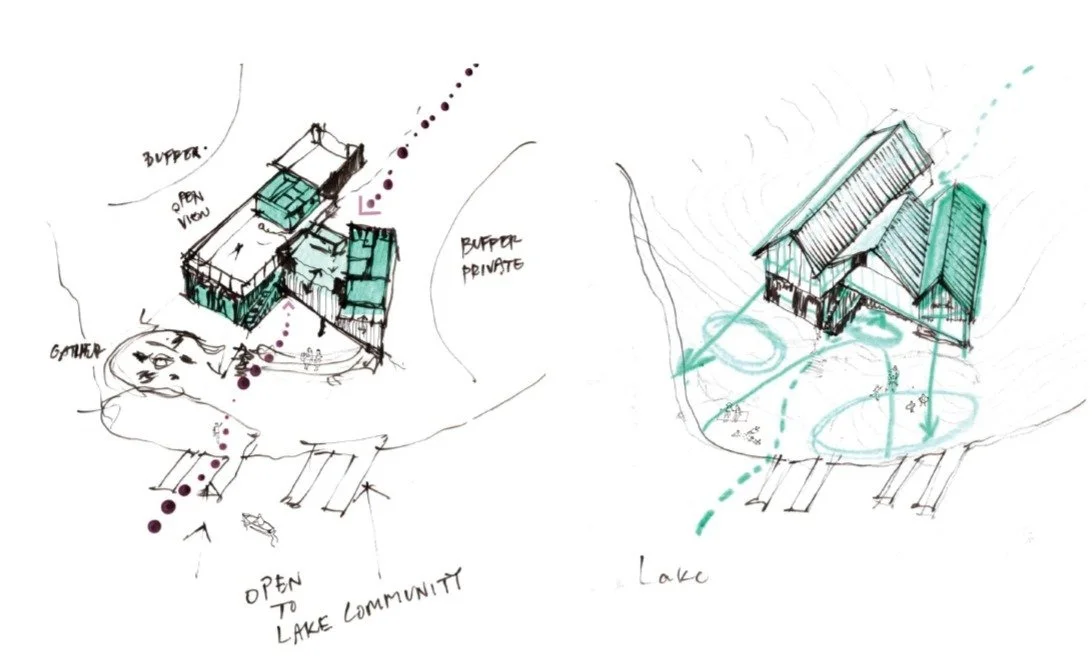 BUFFER.
OPEN
VIEW
BUFFER
PRIVATE
GATHER
OPEN
TO
LAKE COMMUNITY
Lake